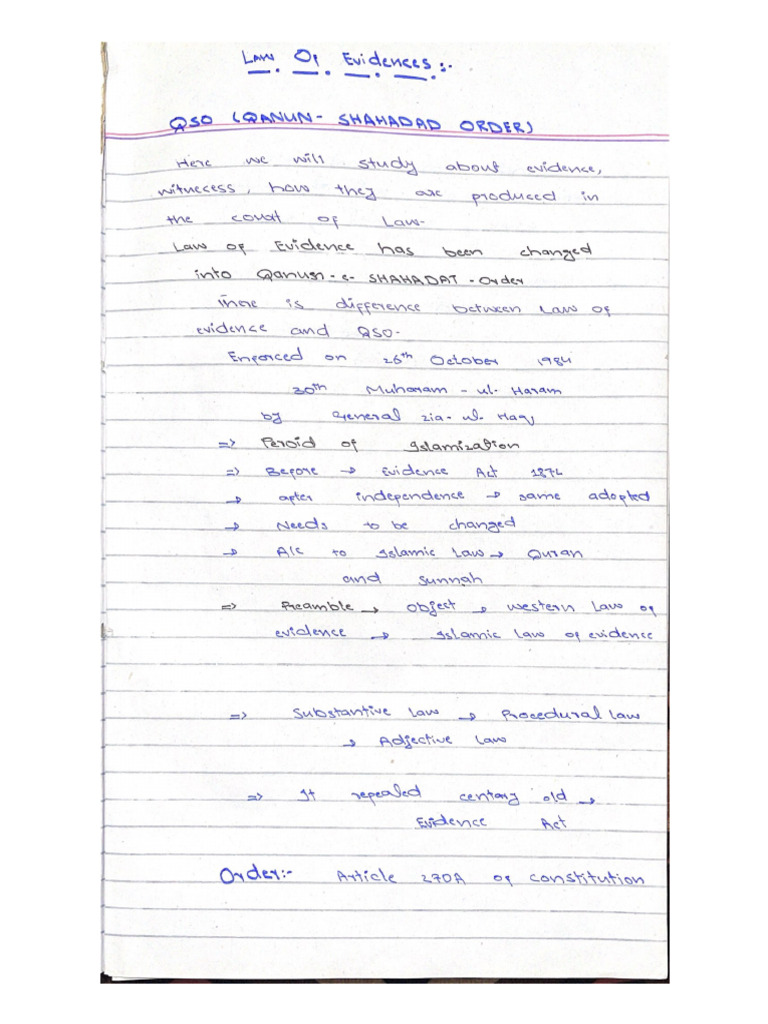 Law Of Evidences:-
QSO (QANUN- SHAHADAD ORDER)
Here we will study about evidence,
witnecess, how they are produced in
the court of Law.
Law of Evidence has been changed
into Qanun-e- SHAHADAT - Order
There is difference between Law of
evidence and QSO.
Enforced on 26th October 1984
30th Muharam - ul- Haram
by General zia- ul- Haq
=> Peroid of Islamization
=> Before → Evidence Act 1872
→ after independence → same adopted
→ Needs to be changed
→ A/c to Islamic Law → Quran
and sunnah
=> Preamble → object → western Law of
evidence → Islamic Law of evidence
=> Substantive Law → Procedural Law
→ Adjective Law
=> It repealed centary old →
Evidence Act
Order:- Article 270A of constitution